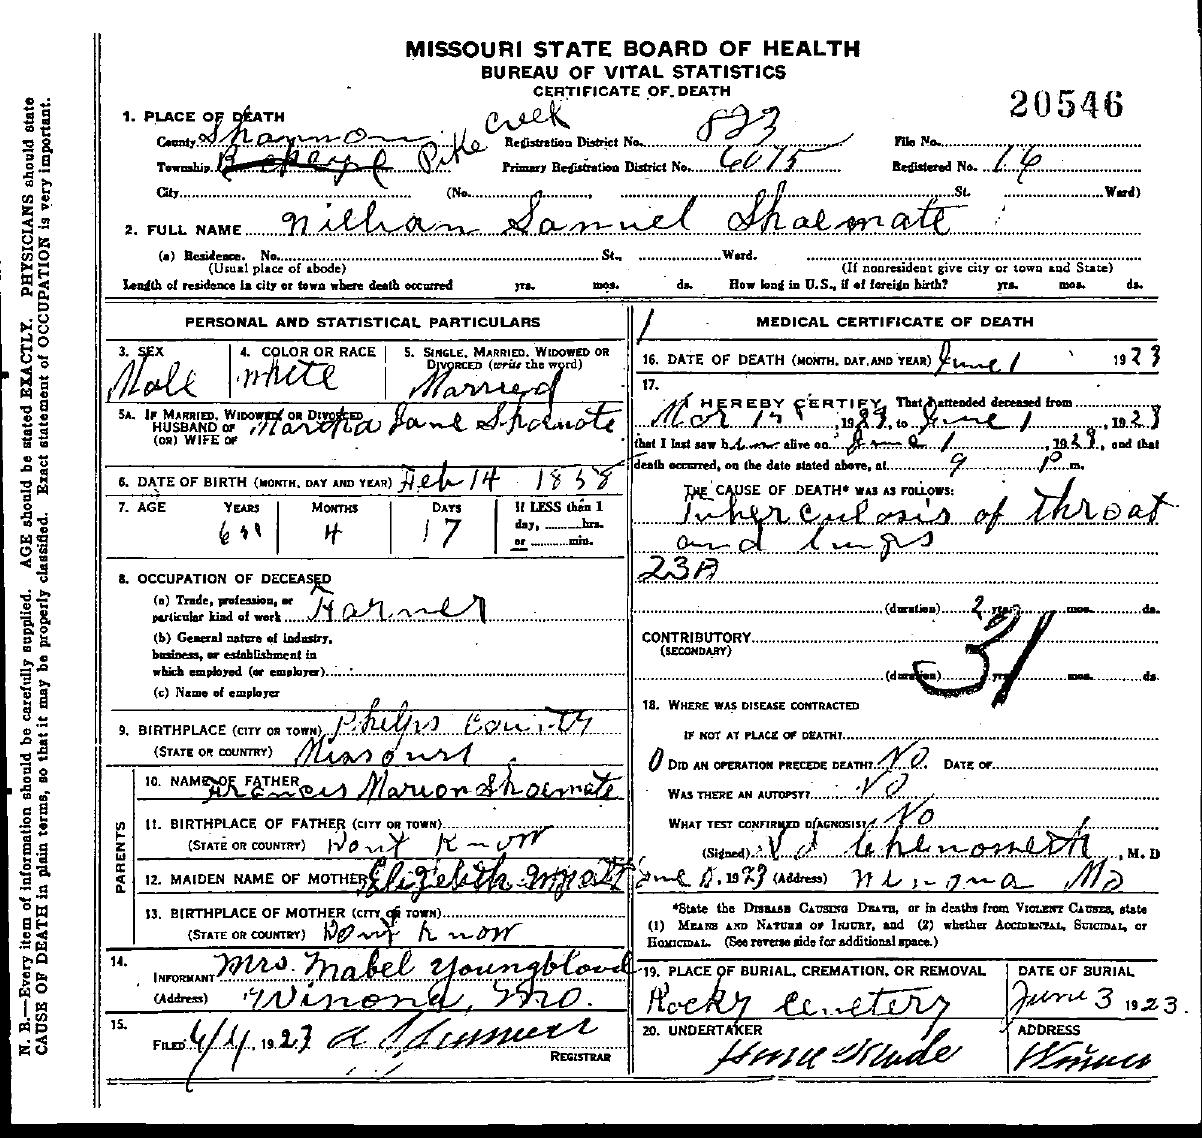 MISSOURI STATE BOARD OF HEALTH
BUREAU OF VITAL STATISTICS
CERTIFICATE OF DEATH
20546
1. PLACE OF DEATH
County Shannon Registration District No. 823 File No.
Township Pike Creek Primary Registration District No. 6075 Registered No. 16
City (No. , St. Ward)
2. FULL NAME William Samuel Shoemate
(a) Residence. No. St., Ward.
(Usual place of abode) (If nonresident give city or town and State)
Length of residence in city or town where death occurred yrs. mos. ds. How long in U.S., if of foreign birth? yrs. mos. ds.
PERSONAL AND STATISTICAL PARTICULARS
3. SEX 4. COLOR OR RACE 5. SINGLE, MARRIED, WIDOWED OR
DIVORCED (write the word)
Male White Married
5A. IF MARRIED, WIDOWED, OR DIVORCED
HUSBAND OF Martha Jane Shoemate
(OR) WIFE OF
6. DATE OF BIRTH (MONTH, DAY AND YEAR) Feb 14 1858
7. AGE YEARS MONTHS DAYS If LESS than 1
day, hrs.
or min.
4 17
8. OCCUPATION OF DECEASED
(a) Trade, profession, or
particular kind of work Farmer
(b) General nature of industry,
business, or establishment in
which employed (or employer)
(c) Name of employer
9. BIRTHPLACE (CITY OR TOWN) Phelps County
(STATE OR COUNTRY) Missouri
PARENTS
10. NAME OF FATHER Francis Marion Shoemate
11. BIRTHPLACE OF FATHER (CITY OR TOWN)
(STATE OR COUNTRY) Dont Know
12. MAIDEN NAME OF MOTHER Elizebeth Wyatt
13. BIRTHPLACE OF MOTHER (CITY OR TOWN)
(STATE OR COUNTRY) Dont Know
14.
INFORMANT Mrs. Mabel Youngblood
(Address) Winona, Mo.
15.
FILED 6/4, 1923
REGISTRAR
MEDICAL CERTIFICATE OF DEATH
16. DATE OF DEATH (MONTH, DAY, AND YEAR) June 1 1923
17.
I HEREBY CERTIFY, That I attended deceased from
to June 1, 1923
that I last saw him alive on June 1, 1923, and that
death occurred, on the date stated above, at 9 P m.
THE CAUSE OF DEATH* WAS AS FOLLOWS:
Tuberculosis of throat
and lungs
23A
(duration) 2 yrs. mos. ds.
CONTRIBUTORY
(SECONDARY)
31
(duration) yrs. mos. ds.
18. WHERE WAS DISEASE CONTRACTED
IF NOT AT PLACE OF DEATH?
0 DID AN OPERATION PRECEDE DEATH? No. DATE OF
WAS THERE AN AUTOPSY? No
WHAT TEST CONFIRMED DIAGNOSIS? No
(Signed) Chenoweth, M. D
June , 1923 (Address) Winona Mo
*State the DISEASE CAUSING DEATH, or in deaths from VIOLENT CAUSES, state
(1) MEANS AND NATURE OF INJURY, and (2) whether ACCIDENTAL, SUICIDAL, or
HOMICIDAL. (See reverse side for additional space.)
19. PLACE OF BURIAL, CREMATION, OR REMOVAL DATE OF BURIAL
Rocky Cemetery June 3 1923.
20. UNDERTAKER ADDRESS
Home Made Winona
N. B.—Every item of information should be carefully supplied. AGE should be stated EXACTLY. PHYSICIANS should state
CAUSE OF DEATH in plain terms, so that it may be properly classified. Exact statement of OCCUPATION is very important.